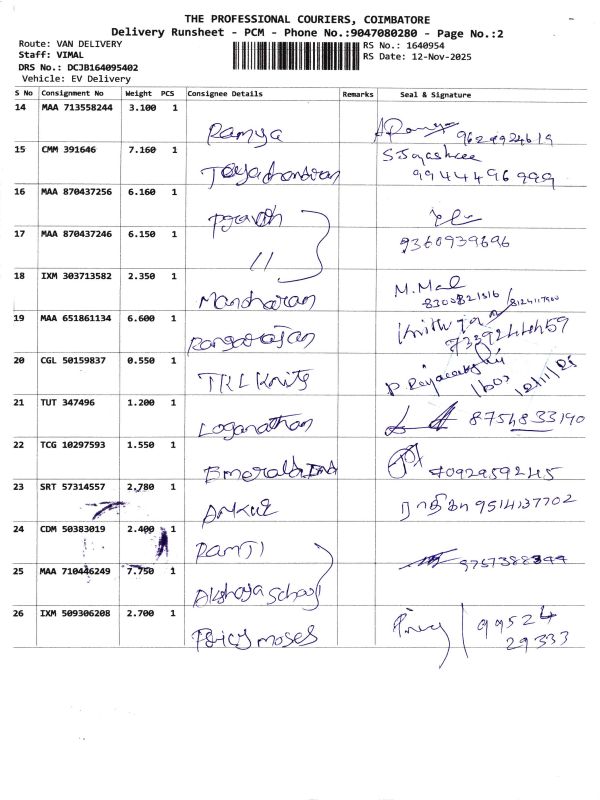 THE PROFESSIONAL COURIERS, COIMBATORE
Delivery Runsheet - PCM - Phone No.:9047080280 - Page No.:2
Route: VAN DELIVERY
Staff: VIMAL
DRS No.: DCJB164095402
Vehicle: EV Delivery
RS No.: 1640954
RS Date: 12-Nov-2025
S No Consignment No Weight PCS Consignee Details Remarks Seal & Signature
14 MAA 713558244 3.100 1 Ramya 9629924619
15 CMM 391646 7.160 1 S Jayashree
9944496999
16 MAA 870437256 6.160 1
17 MAA 870437246 6.150 1 11 9360939696
18 IXM 303713582 2.350 1 Manoharan M. Mal
8300821516 / 8124117900
19 MAA 651861134 6.600 1 Rangarajan
7339244459
20 CGL 50159837 0.550 1 TRL Knits 12/11/25
21 TUT 347496 1.200 1 Loganathan 8754833190
22 TCG 10297593 1.550 1 Emerald Ind 7092959245
23 SRT 57314557 2.780 1 Ankur ராதிகா 9514137702
24 CDM 50383019 2.400 1 Ramji
9757388344
25 MAA 710446249 7.750 1 Akshaya School
26 IXM 509306208 2.700 1 Pricy moses Pricy 99524
29333